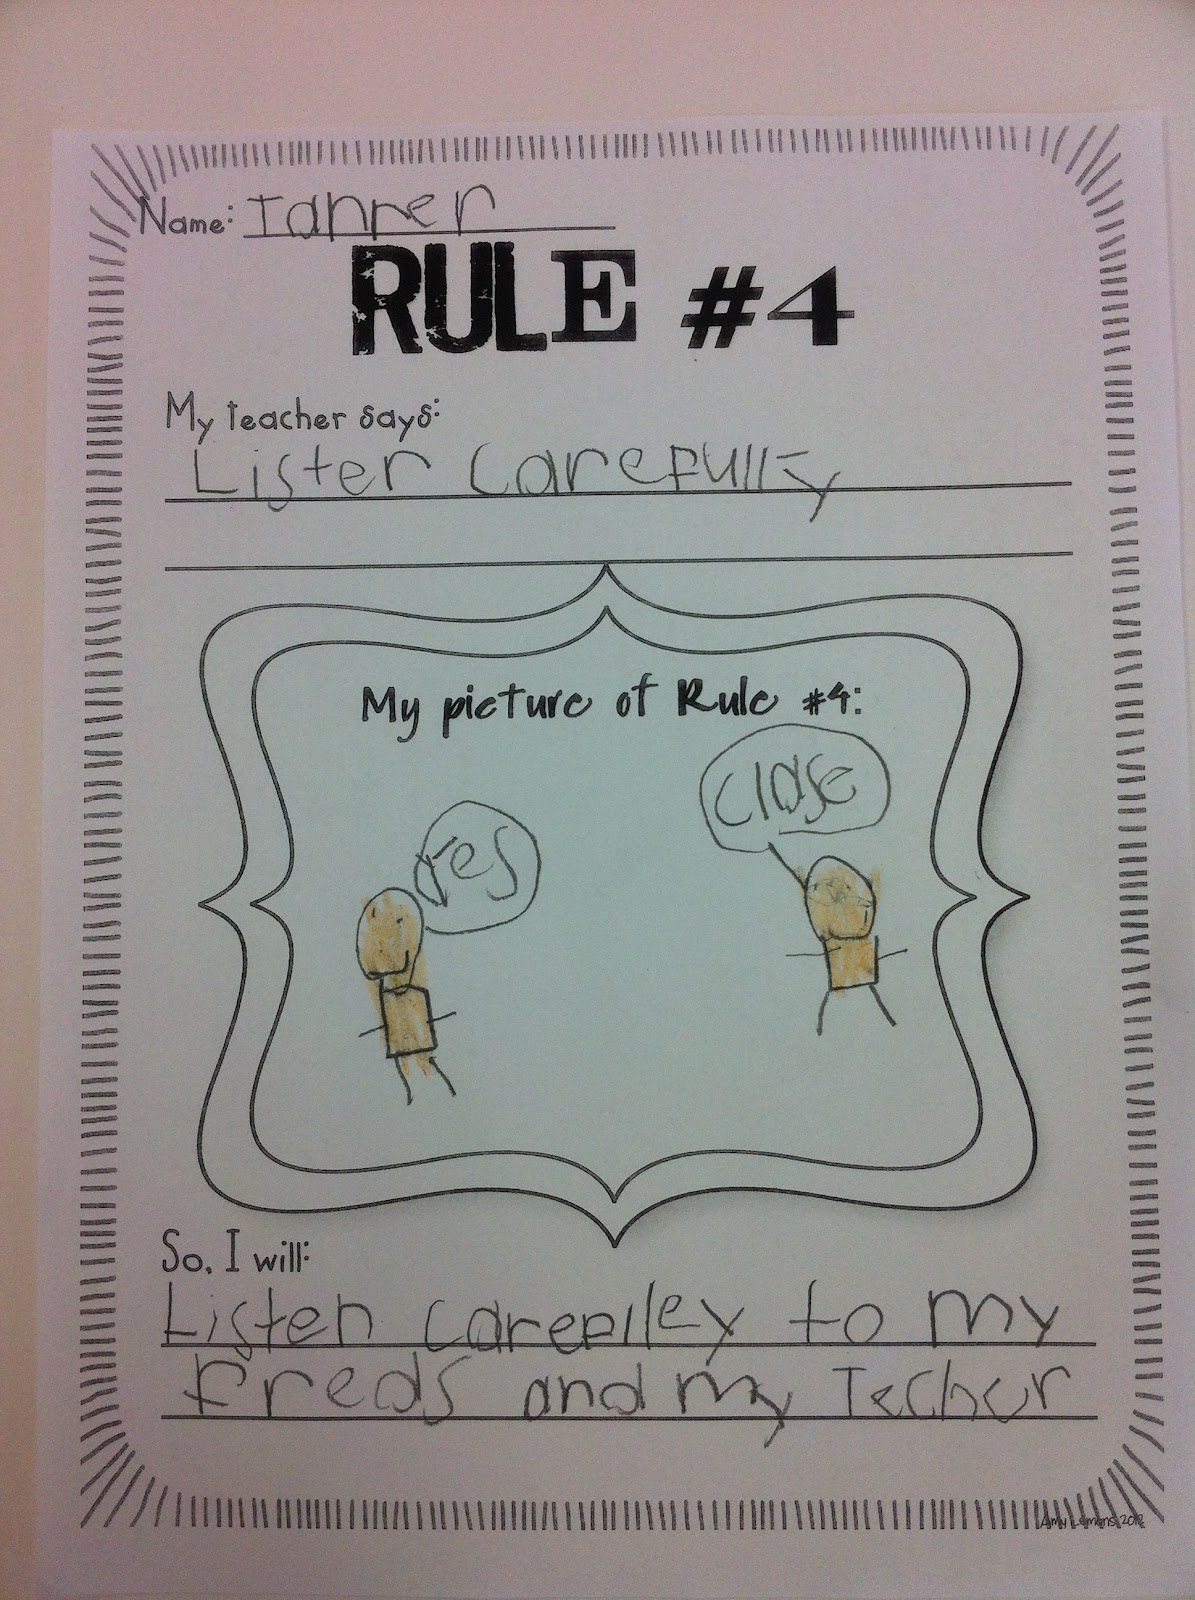 Name: Tanner
RULE #4
My teacher says:
Listen Carefully
My picture of Rule #4:
Close
yes
So, I will:
Listen careflley to my
freds and my Techur
Amy Lemons 2012